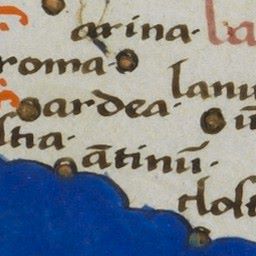 arina·
la
roma·
lanu
ardea·
stia·
ātinū·
tlost